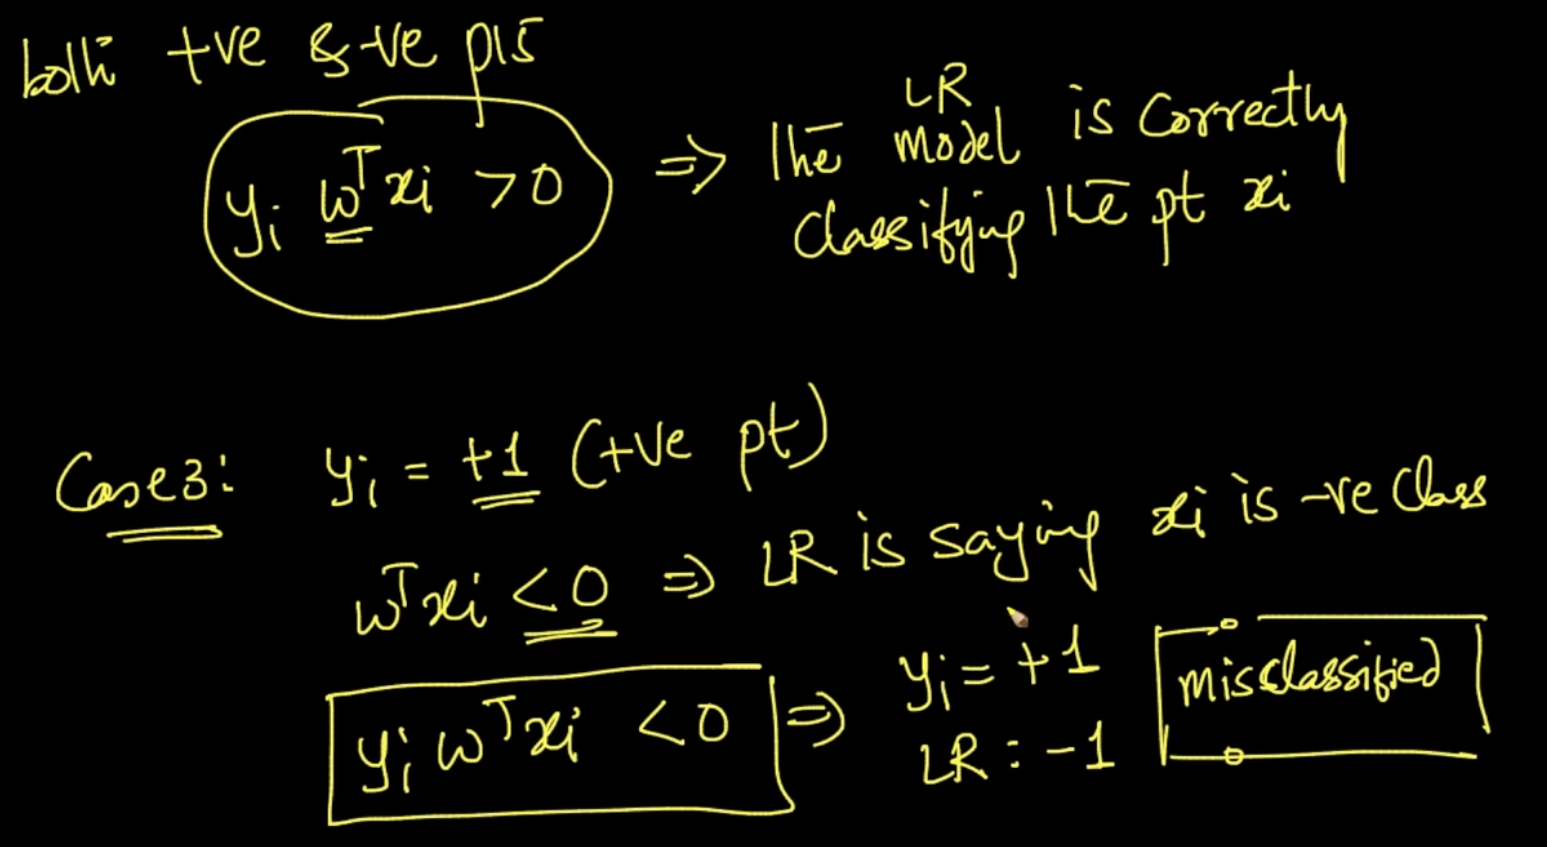 both +ve & -ve pts
yᵢ wᵀxᵢ > 0 ⇒ the LR model is correctly
classifying the pt xᵢ
Case3: yᵢ = +1 (+ve pt)
wᵀxᵢ < 0 ⇒ LR is saying xᵢ is -ve class
yᵢ wᵀxᵢ < 0 ⇒ yᵢ = +1 misclassified
LR : -1